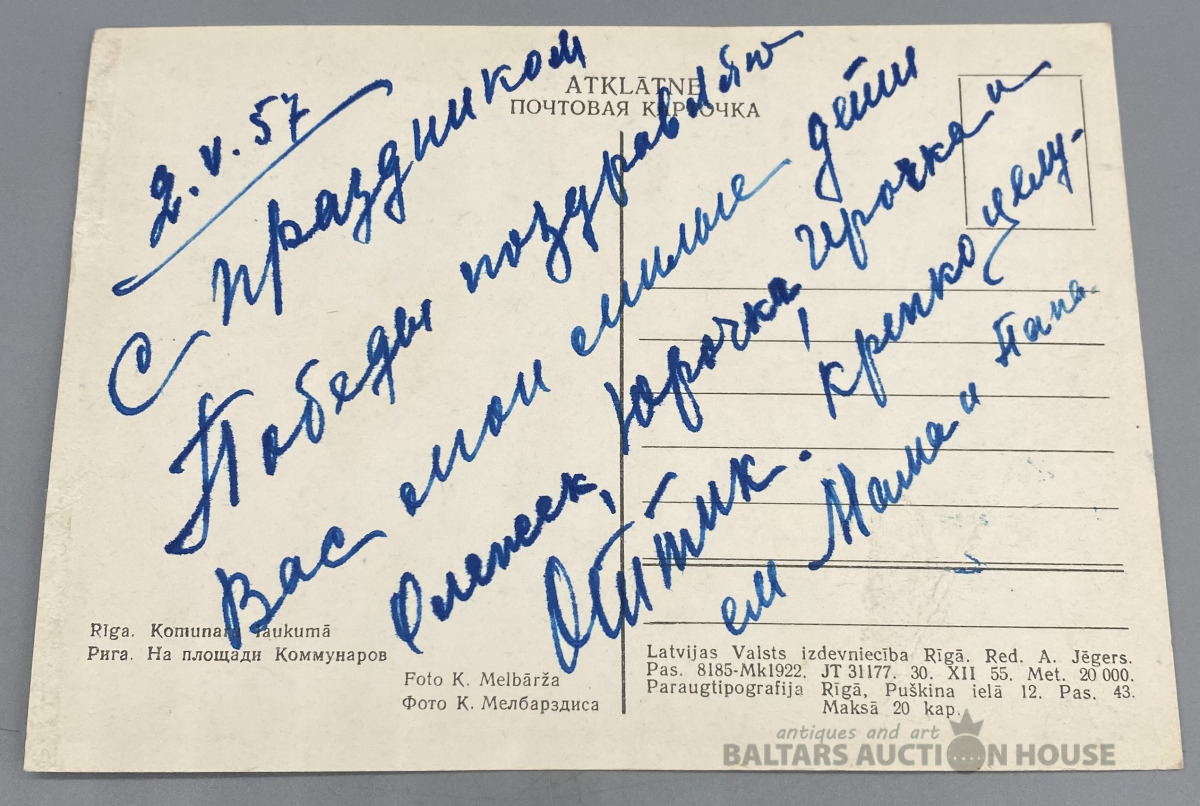 ATKLĀTNE
ПОЧТОВАЯ КАРТОЧКА
2.V.57
С праздником
Победы поздравляю
Вас мои милые дети
Олепсек, Юрочка, Ирочка и
Отик. Крепко целу-
ем Мама и Папа.
Rīga. Komunaru laukumā
Рига. На площади Коммунаров
Foto K. Melbārža
Фото К. Мелбарздиса
Latvijas Valsts izdevniecība Rīgā. Red. A. Jēgers.
Pas. 8185-Mk1922. JT 31177. 30. XII 55. Met. 20 000.
Paraugtipografija Rīgā, Puškina ielā 12. Pas. 43.
Maksā 20 kap.
antiques and art
BALTARS AUCTION HOUSE